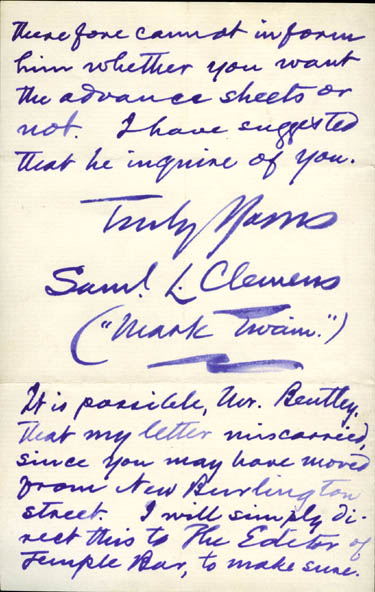 therefore cannot inform
him whether you want
the advance sheets or
not. I have suggested
that he inquire of you.
Truly Yours
Saml. L. Clemens
("Mark Twain.")
It is possible, Mr. Bentley,
that my letter miscarried,
since you may have moved
from New Burlington
street. I will simply di-
rect this to The Editor of
Temple Bar, to make sure.